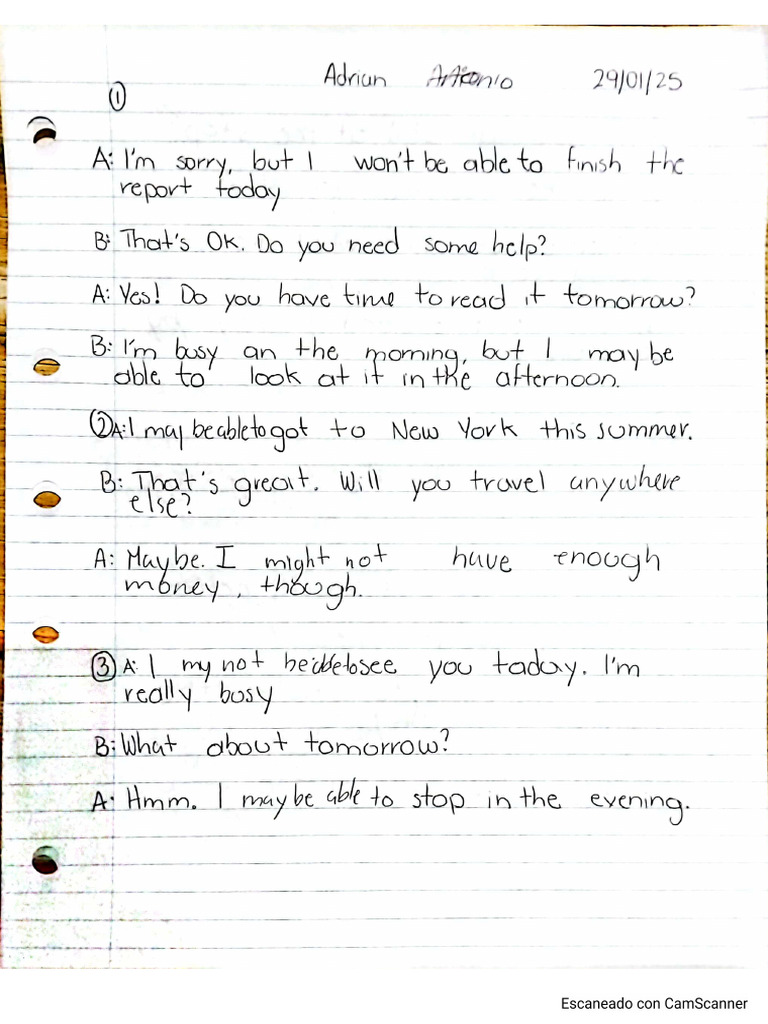 Adrian Antonio 29/01/25
①
A: I'm sorry, but I won't be able to finish the
report today
B: That's Ok. Do you need some help?
A: Yes! Do you have time to read it tomorrow?
B: I'm busy an the morning, but I may be
able to look at it in the afternoon.
② A: I may be able to got to New York this summer.
B: That's great. Will you travel anywhere
else?
A: Maybe. I might not have enough
money, though.
③ A: I my not be able to see you taday. I'm
really busy
B: What about tomorrow?
A: Hmm. I may be able to stop in the evening.
Escaneado con CamScanner